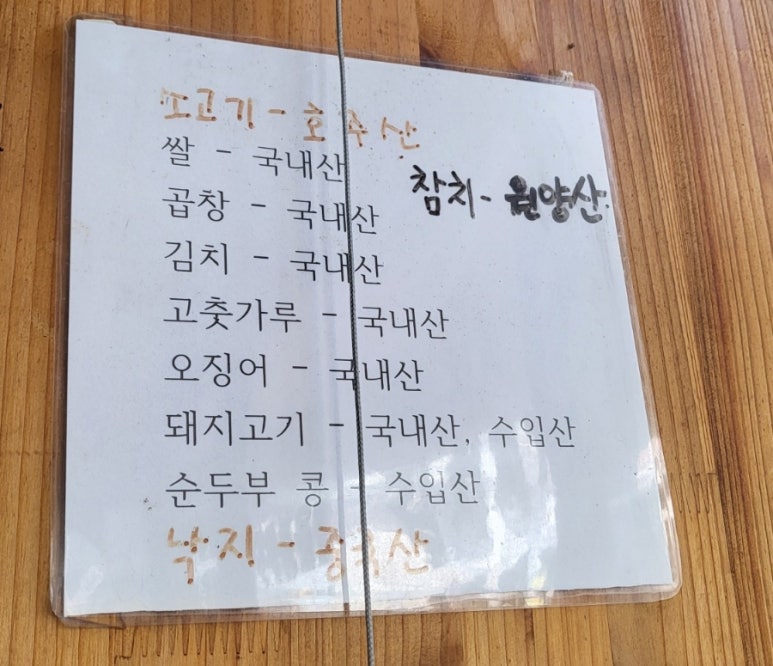 소고기 - 호주산
쌀 - 국내산
참치 - 원양산
곱창 - 국내산
김치 - 국내산
고춧가루 - 국내산
오징어 - 국내산
돼지고기 - 국내산, 수입산
순두부 콩 - 수입산
낙지 - 중국산